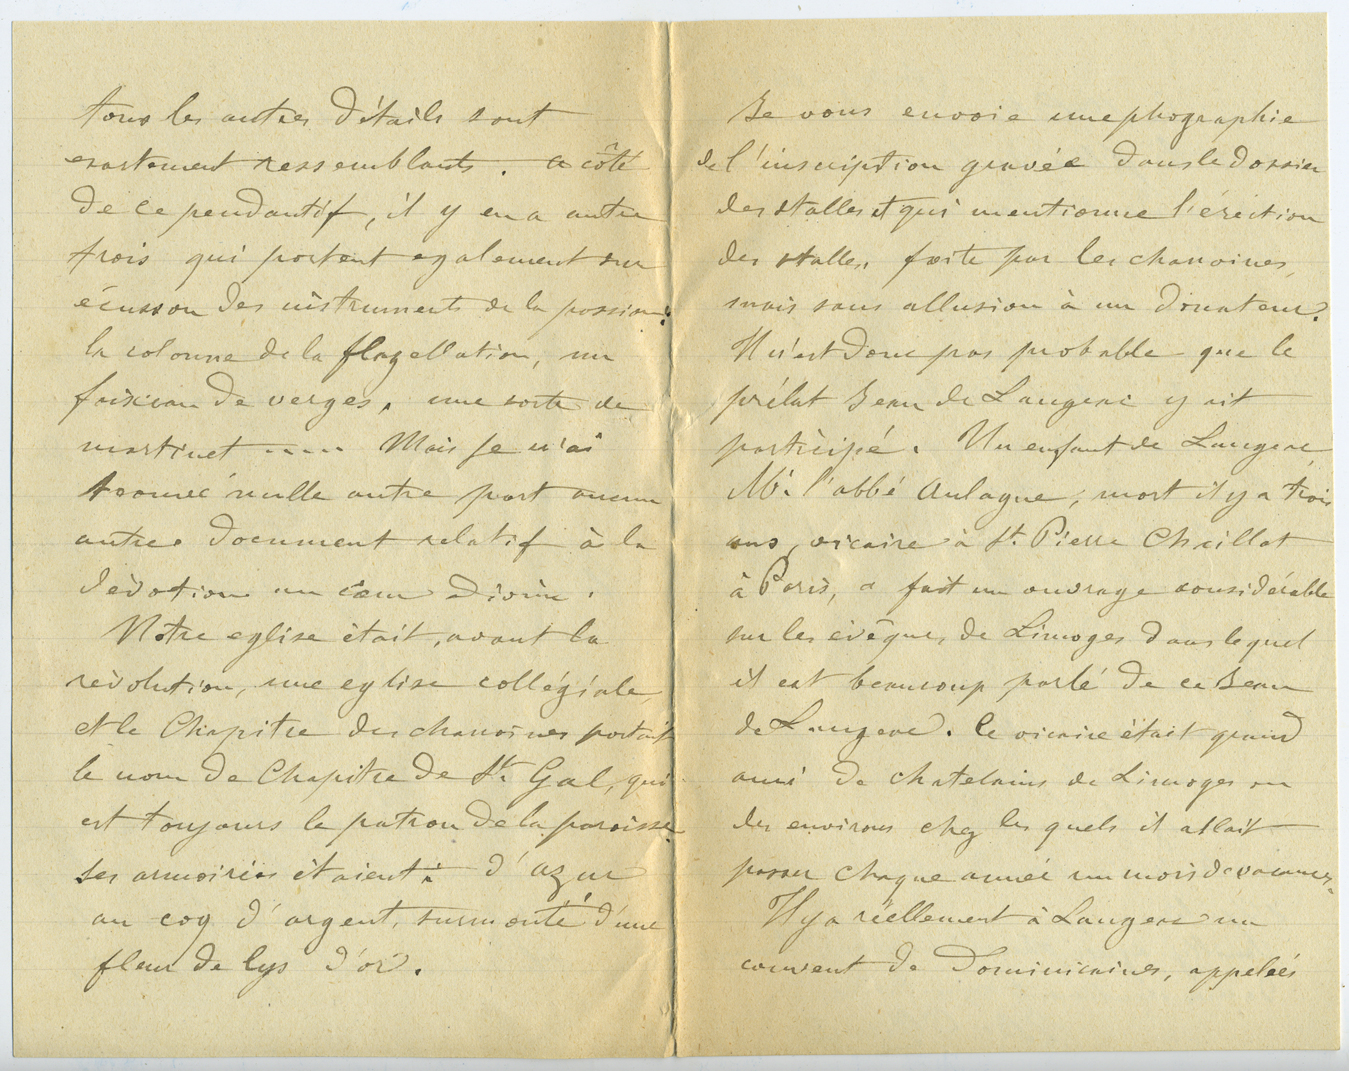 tous les autres détails sont
exactement ressemblants. a côté
de ce pendantif, il y en a autre
trois qui portent egalement sur
écusson des instruments de la passion:
la colonne de la flagellation, un
faisceau de verges, une sorte de
martinet .... Mais je n'ai
trouvé nulle autre part aucun
autre document relatif à la
dévotion au cœur divin.
Notre eglise était, avant la
révolution, une eglise collégiale,
et le Chapitre des chanoines portait
le nom de Chapitre de St. Gal, qui
est toujours le patron de la paroisse
ses armoiries étaient: d'azur
au coq d'argent, surmonté d'une
fleur de lys d'or.
Je vous envoie une phographie
de l'inscription gravée dans le dossier
des stalles et qui mentionne l'érection
des stalles, faite par les chanoines,
mais sans allusion à un donateur.
Il n'est donc pas probable que le
prélat Jean de Langeac y ait
participé. Un enfant de Langeac
Mr. l'abbé Aulagne, mort il y a trois
ans, vicaire à St. Pierre Chaillot
à Paris, a fait un ouvrage considérable
sur les évêques de Limoges dans lequel
il est beaucoup parlé de ce Jean
de Langeac. Ce vicaire était grand
ami de chatelains de Limoges ou
des environs chez les quels il allait
passer chaque année un mois de vacances.
Il y a réellement à Langeac un
couvent de Dominicaines, appelées